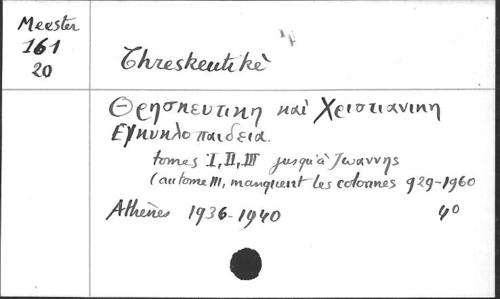 Meester
161
20
Threskeutikè
Θρησκευτικη καὶ Χριστιανικη
Εγκυκλοπαιδεια.
tomes I, II, III jusqu'à Ιωαννης
(au tome III, manquent les colonnes 929-1960
Athènes 1936-1940 4°